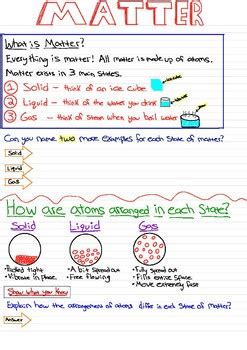 MATTER
What is Matter?
Everything is matter! All matter is made up of atoms.
Matter exists in 3 main states.
1 Solid - think of an ice cube
2 Liquid - think of the water you drink
3 Gas - think of steam when you boil water
Can you name two more examples for each state of matter?
Solid
Liquid
Gas
How are atoms arranged in each State?
Solid Liquid Gas
• Packed tight
• Vibrate in place
• A bit spread out
• Free flowing
• Fully spread out
• Fills entire space
• Move extremely fast
Show what you know
Explain how the arrangement of atoms differ in each state of matter?
Answer